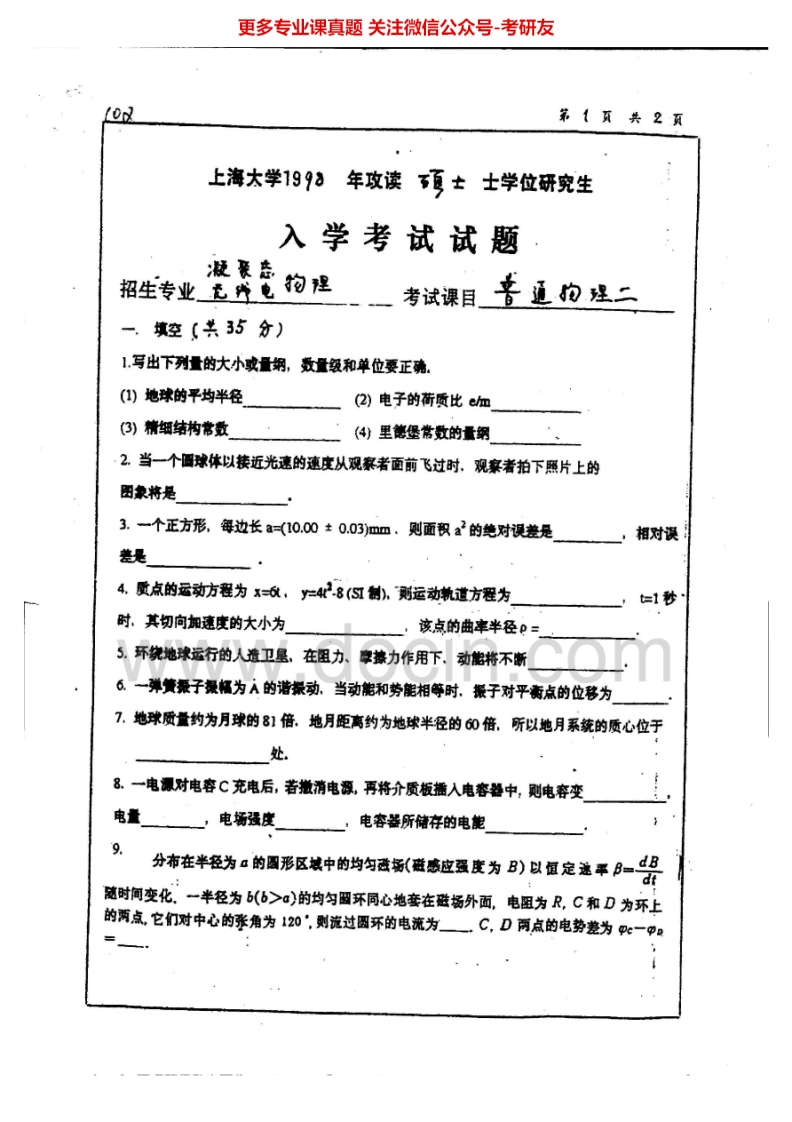 更多专业课真题 关注微信公众号-考研友
102
第 1 页 共 2 页
上海大学1998 年攻读 硕士 士学位研究生
入学考试试题
凝聚态
招生专业 无线电物理 考试课目 普通物理二
一. 填空 (共 35 分)
1.写出下列量的大小或量纲, 数量级和单位要正确.
(1) 地球的平均半径 (2) 电子的荷质比 e/m
(3) 精细结构常数 (4) 里德堡常数的量纲
2. 当一个圆球体以接近光速的速度从观察者面前飞过时, 观察者拍下照片上的
图象将是 .
3. 一个正方形, 每边长 a=(10.00 ± 0.03)mm , 则面积 a² 的绝对误差是 , 相对误
差是 .
4. 质点的运动方程为 x=6t, y=4t²-8 (SI 制), 则运动轨道方程为 , t=1 秒
时, 其切向加速度的大小为 , 该点的曲率半径 ρ =
5. 环绕地球运行的人造卫星, 在阻力、摩擦力作用下, 动能将不断 .
6. 一弹簧振子振幅为 A 的谐振动, 当动能和势能相等时, 振子对平衡点的位移为 .
7. 地球质量约为月球的 81 倍, 地月距离约为地球半径的 60 倍, 所以地月系统的质心位于
处.
8. 一电源对电容 C 充电后, 若撤消电源, 再将介质板插入电容器中, 则电容变 ,
电量 , 电场强度 , 电容器所储存的电能 .
9. 分布在半径为 a 的圆形区域中的均匀磁场(磁感应强度为 B) 以恒定速率 β=dB/dt
随时间变化. 一半径为 b(b>a)的均匀圆环同心地套在磁场外面, 电阻为 R, C 和 D 为环上
的两点, 它们对中心的张角为 120°, 则流过圆环的电流为 . C, D 两点的电势差为 φC-φD
= .
www.docin.com